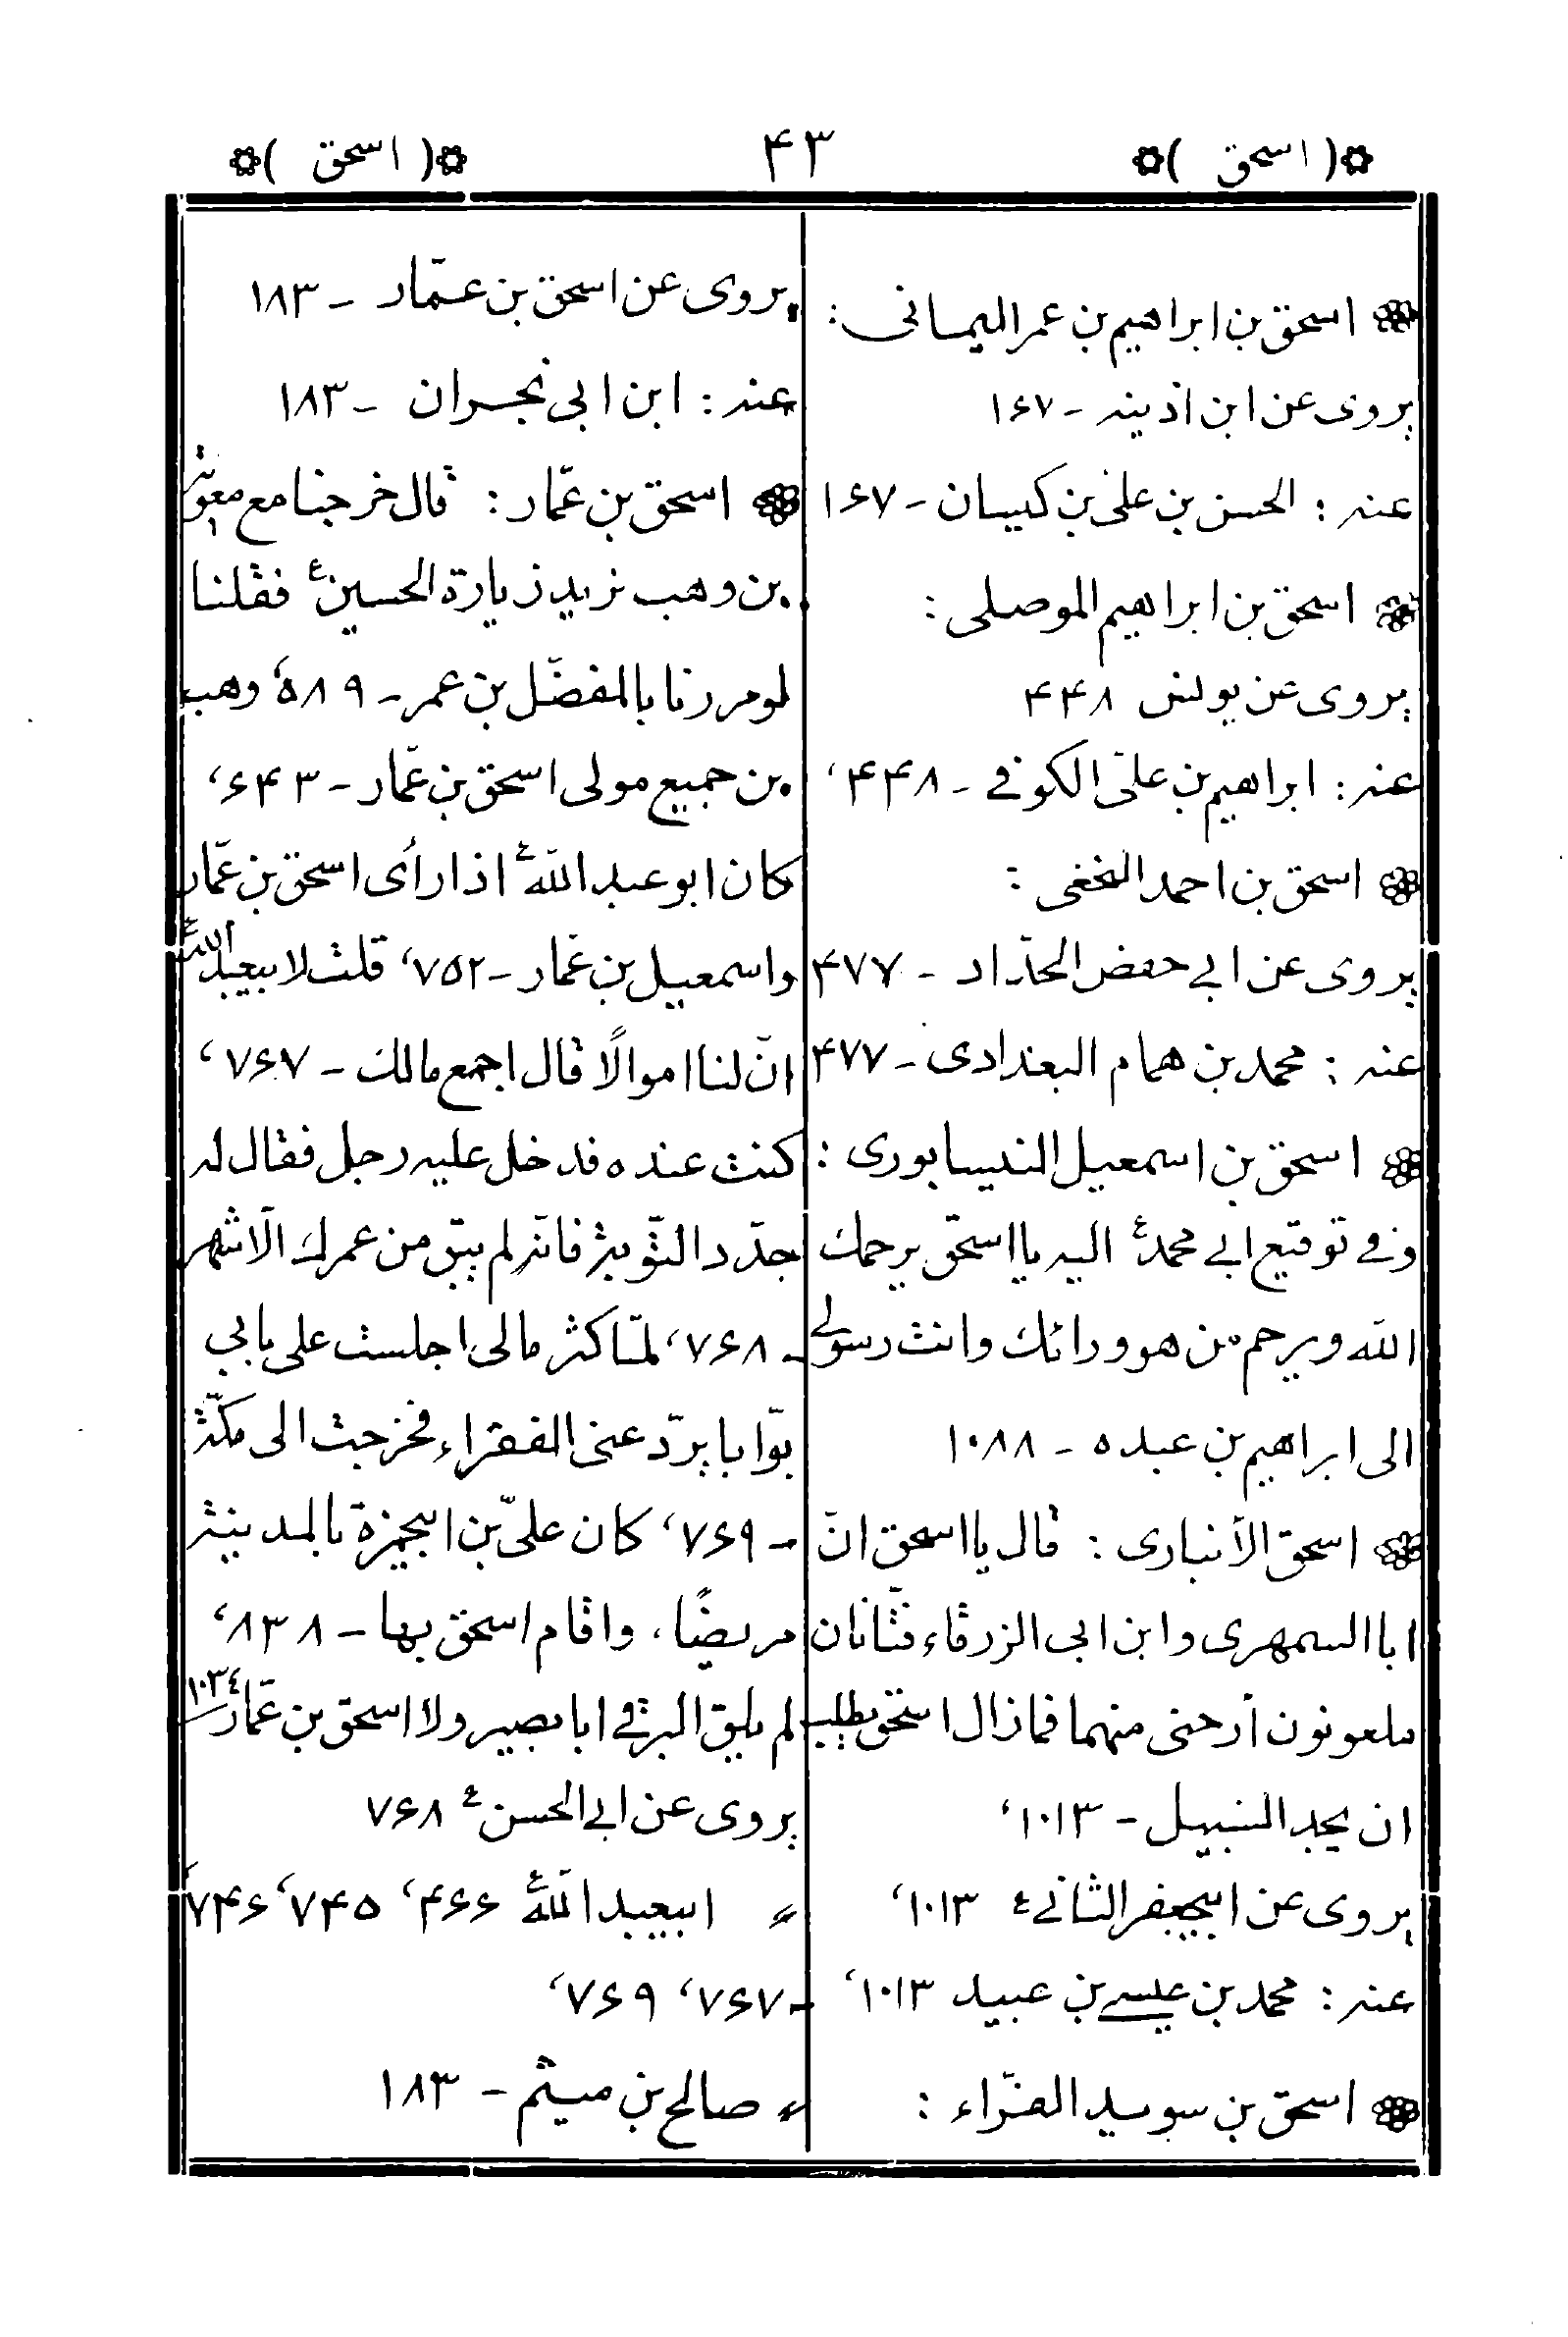 ۞( اسحق )۞ ۴۳ ۞( اسحق )۞
۞ اسحق بن ابراهيم بن عمر اليمانى :
يروى عن ابن اذينه - ۱۶۷
عنه : الحسن بن على بن كيسان - ۱۶۷
۞ اسحق بن ابراهيم الموصلى :
يروى عن يونس ۴۴۸
عنه : ابراهيم بن علىّ الكوفي - ۴۴۸،
۞ اسحق بن احمد النخعى :
يروى عن ابي حفص الحدّاد - ۴۷۷
عنه : محمد بن همام البغدادى - ۴۷۷
۞ اسحق بن اسمعيل النيسابورى :
وفي توقيع ابي محمدؑ اليه يا اسحق يرحمك
الله ويرحم من هو ورائك وانت رسولي
الى ابراهيم بن عبده - ۱۰۸۸
۞ اسحق الأنبارى : قال يا اسحق انّ
ابا السمهرى وابن ابى الزرقاء فتّانان
ملعونون أرحنى منهما فمازال اسحق يطلب
ان يجد السبيل - ۱۰۱۳،
يروى عن ابيجعفر الثاني ع ۱۰۱۳،
عنه : محمد بن عيسى بن عبيد ۱۰۱۳،
۞ اسحق بن سويد الفرّاء :
يروى عن اسحق بن عمّار - ۱۸۳
عنه : ابن ابى نجران - ۱۸۳
۞ اسحق بن عمّار : قال خرجنا مع معوية
بن وهب نريد زيارة الحسين ع فقلنا
لو مررنا بالمفضّل بن عمر - ۵۸۹، وهب
بن جميع مولى اسحق بن عمّار - ۶۴۳،
كان ابو عبد اللهؑ اذا رأى اسحق بن عمّار
واسمعيل بن عمّار - ۷۵۲، قلت لابيعبد اللهؑ
انّ لنا اموالًا قال اجمع مالك - ۷۶۷،
كنت عنده فدخل عليه رجل فقال له
جدّد التّوبة فانّه لم يبق من عمرك الّا شهر
- ۷۶۸، لمّا كثر مالى اجلست على بابي
بوّابا يردّ عنى الفقراء فخرجت الى مكّة
- ۷۶۹، كان علىّ بن ابيحمزة بالمدينة
مريضًا، واقام اسحق بها - ۸۳۸،
لم يلق البرقي ابا بصير ولا اسحق بن عمّار - ۱۰۳٤
يروى عن ابي الحسن ع ۷۶۸
〃 ابيعبد اللهؑ ۴۶۶، ۷۴۵، ۷۴۶،
- ۷۶۷، ۷۶۹،
〃 صالح بن ميثم - ۱۸۳